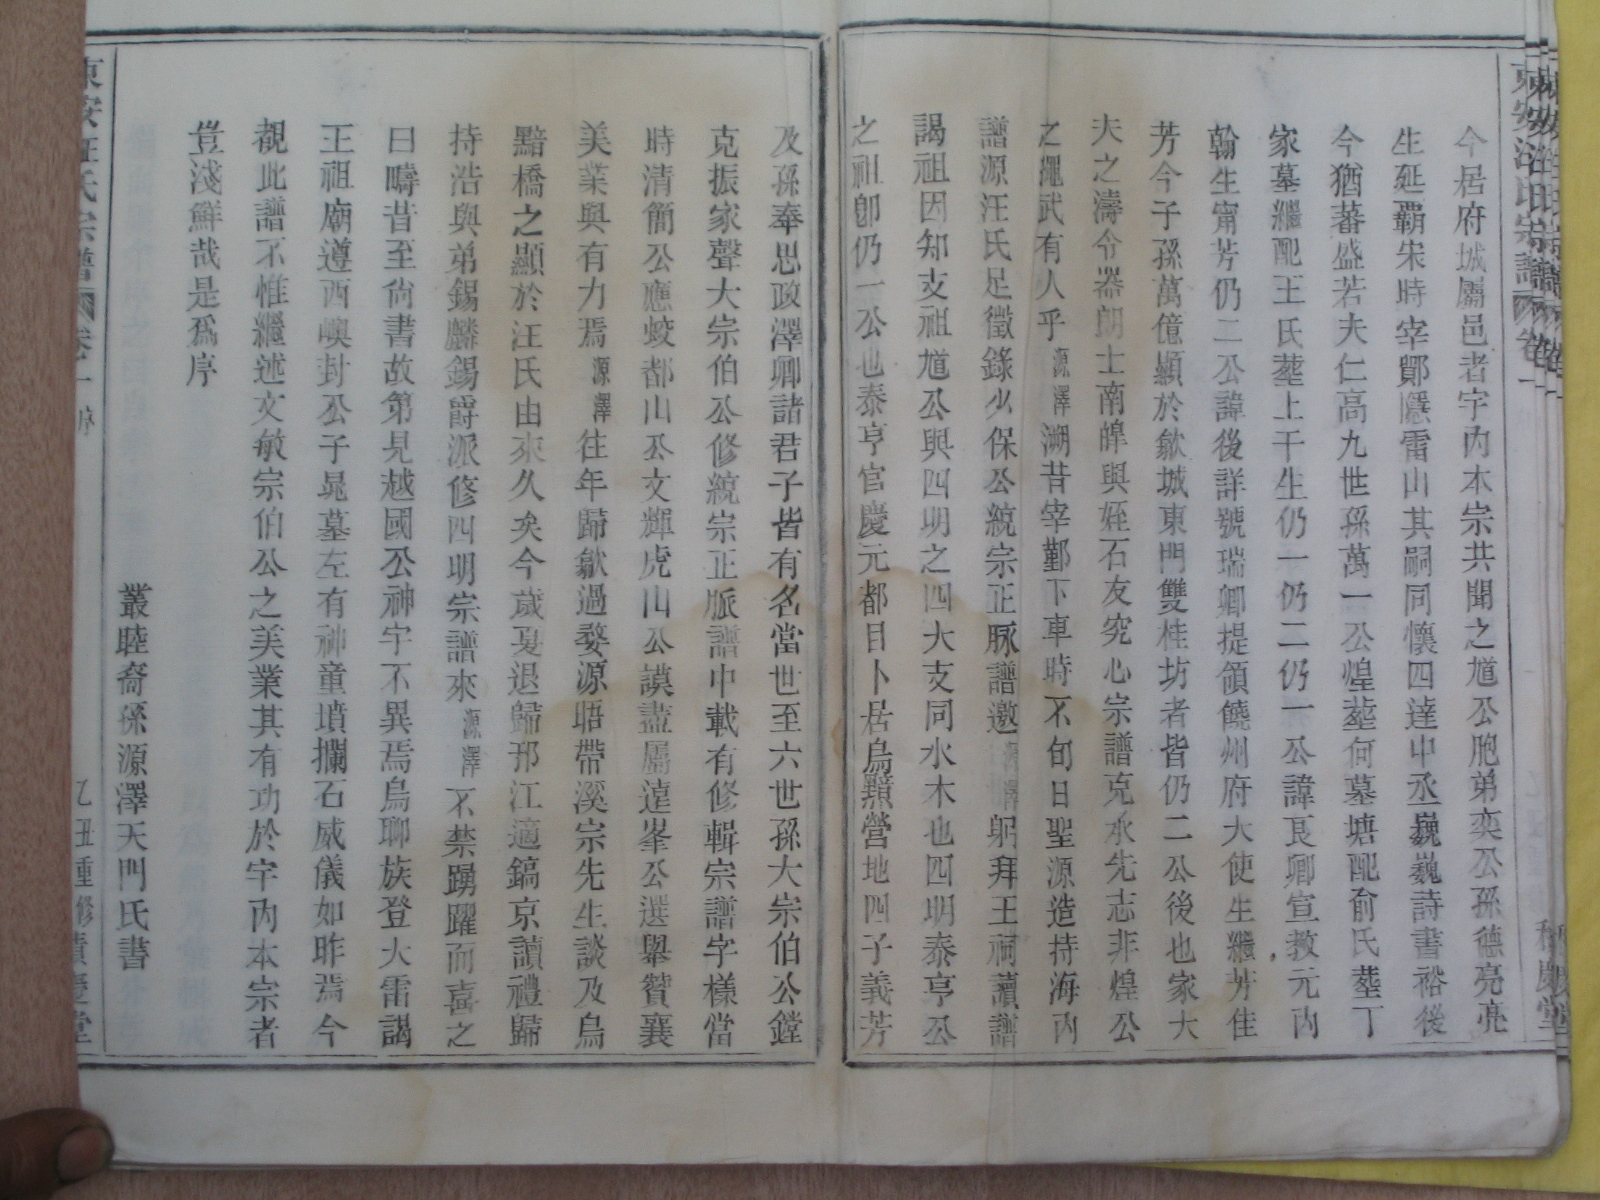 今居府城屬邑者宇內本宗共聞之馗公胞弟奕公孫德亮亮
生延覇朱時宰鄞隱雷山其嗣同懷四達中丞巍巍詩書裕後
今猶蕃盛若夫仁高九世孫萬一公煌塟何墓塘配俞氏塟丁
家墓繼配王氏塟上干生仍一仍二仍一公諱艮卿宣教元內
翰生甯芳仍二公諱後詳號瑞卿提領饒州府大使生繼芳佳
芳今子孫萬億顯於歙城東門雙桂坊者皆仍二公後也家大
夫之濤令器朗士南皥與姪石友究心宗譜克承先志非煌公
之繩武有人乎源澤溯昔宰鄞下車時不旬日聖源造持海內
譜源汪氏足徵錄少保公統宗正脉譜邀源澤躬拜王祠讀譜
謁祖因知支祖馗公與四明之四大支同水木也四明泰亨公
之祖卽仍一公也泰亨官慶元都目卜居鳥黯營地四子義芳
及孫奉思政澤卿諸君子皆有名當世至六世孫大宗伯公鏜
克振家聲大宗伯公修統宗正脈譜中載有修輯宗譜字樣當
時清簡公應蛟都山公文輝虎山公謨盡屬達峯公選舉贊襄
美業與有力焉源澤往年歸歙過婺源晤帶溪宗先生談及烏
黯橋之顯於汪氏由來久矣今歲夏退歸邗江適鎬京讀禮歸
持浩與弟錫麟錫爵派修四明宗譜來源澤不禁踴躍而喜之
曰疇昔至尙書故第見越國公神宇不異焉烏聊族登大雷謁
王祖廟遵西嶼封公子晁墓左有神童墳攔石威儀如昨焉今
覩此譜不惟繼述文敏宗伯公之美業其有功於宇內本宗者
豈淺鮮哉是爲序
叢睦裔孫源澤天門氏書
東安汪氏宗譜 卷一 序 乙丑重修積慶堂